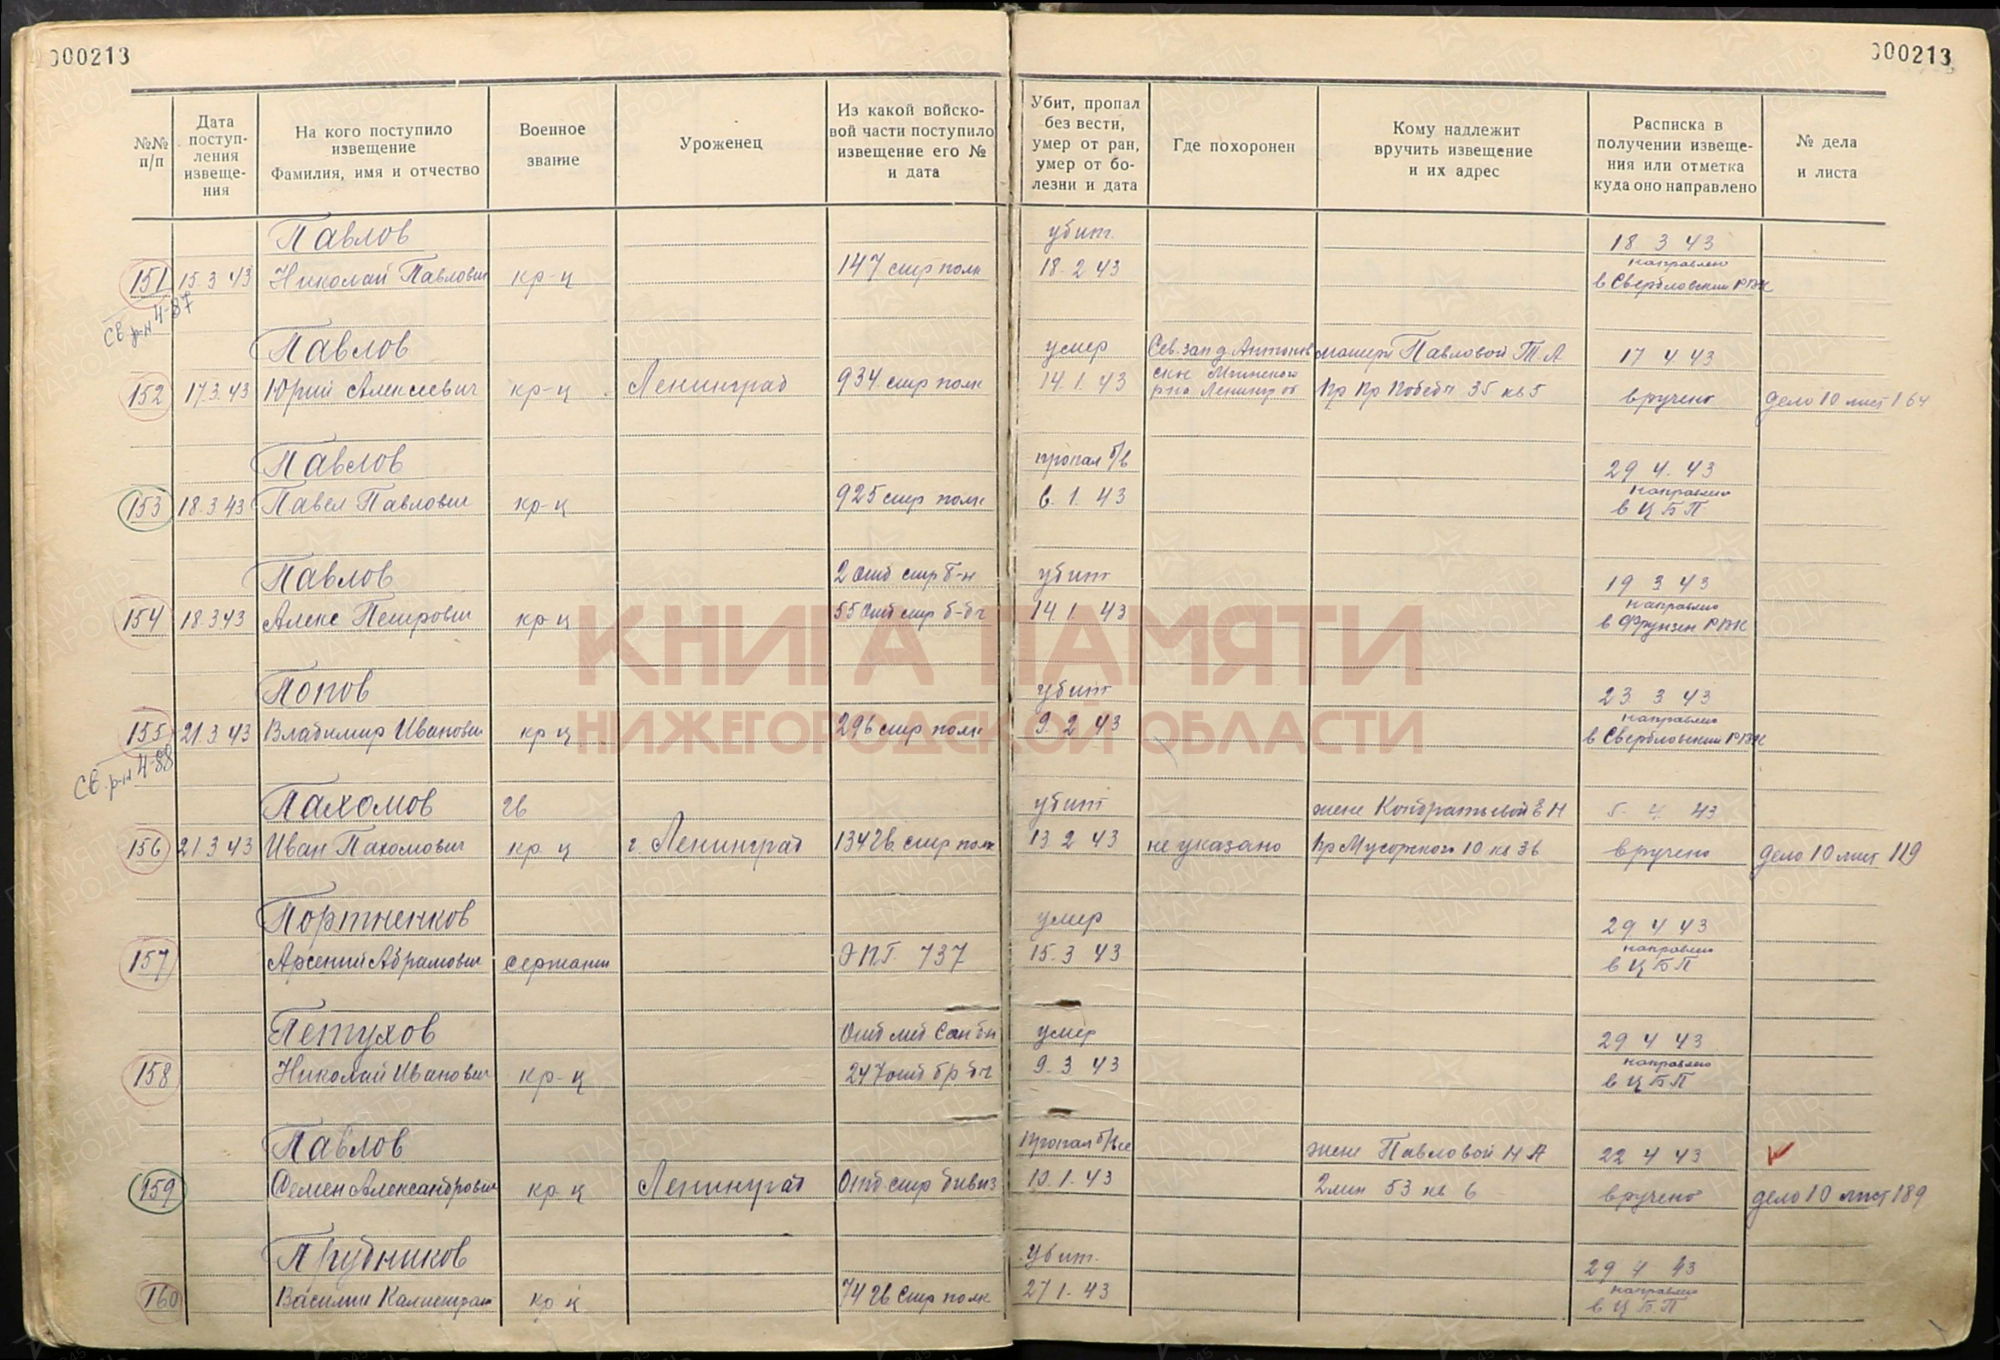 000213
000213
№№ п/п
Дата поступ-
ления
извеще-
ния
На кого поступило
извещение
Фамилия, имя и отчество
Военное
звание
Уроженец
Из какой войско-
вой части поступило
извещение его №
и дата
Убит, пропал
без вести,
умер от ран,
умер от бо-
лезни и дата
Где похоронен
Кому надлежит
вручить извещение
и их адрес
Расписка в
получении извеще-
ния или отметка
куда оно направлено
№ дела
и листа
Павлов убит. 18 3 43
151 15.3 43 Николай Павлович кр-ц 147 стр полк 18. 2 43 направлено
в Свердловский РВК
Св. р-н 4-87
Павлов умер Сев. зап д. матери Павловой Т А 17 4 43
152 17.3.43 Юрий Алексеевич кр-ц Ленинград 934 стр полк 14. 1. 43 Мгинского
р-на Ленингр об Пр Победы 35 кв 5 вручено дело 10 лист 164
Павлов пропал б/в 29 4. 43
153 18.3 43 Павел Павлович кр-ц 925 стр полк 6. 1. 43 направлено
в ЦБП
Павлов 2 отд стр б-н убит 19 3 43
154 18.3 43 Алекс Петрович кр ц 55 отд стр б-ды 14. 1. 43 направлено
в Фрунзен РВК
Попов убит 23 3 43
155 21.3 43 Владимир Иванович кр ц 296 стр полк 9. 2 43 направлено
в Свердловский РВК
Св. р-н 4-88
Пахомов гв убит жене Кондратьевой Е Н 5. 4. 43
156 21 3 43 Иван Пахомович кр ц г. Ленинград 134 гв. стр полк 13 2 43 не указано Пр Мусоргского 10 кв 36 вручено дело 10 лист 119
Портненков умер 29 4 43
157 Арсений Абрамович сержант ЭПГ 737 15. 3 43 направлено
в ЦБП
Петухов Отд мед Санбн умер 29 4 43
158 Николай Иванович кр-ц 247 отд бр 9. 3 43 направлено
в ЦБП
Павлов пропал б/вес жене Павловой Н А 22 4 43
159 Семен Александрович кр. ц Ленинград Отд стр дивиз 10. 1. 43 2 лин 53 кв 6 вручено дело 10 лист 189
Трубников убит. 29 4 43
160 Василий кр к 74 гв стр полк 27 1. 43 направлено
в ЦБП
КНИГА ПАМЯТИ
НИЖЕГОРОДСКОЙ ОБЛАСТИ